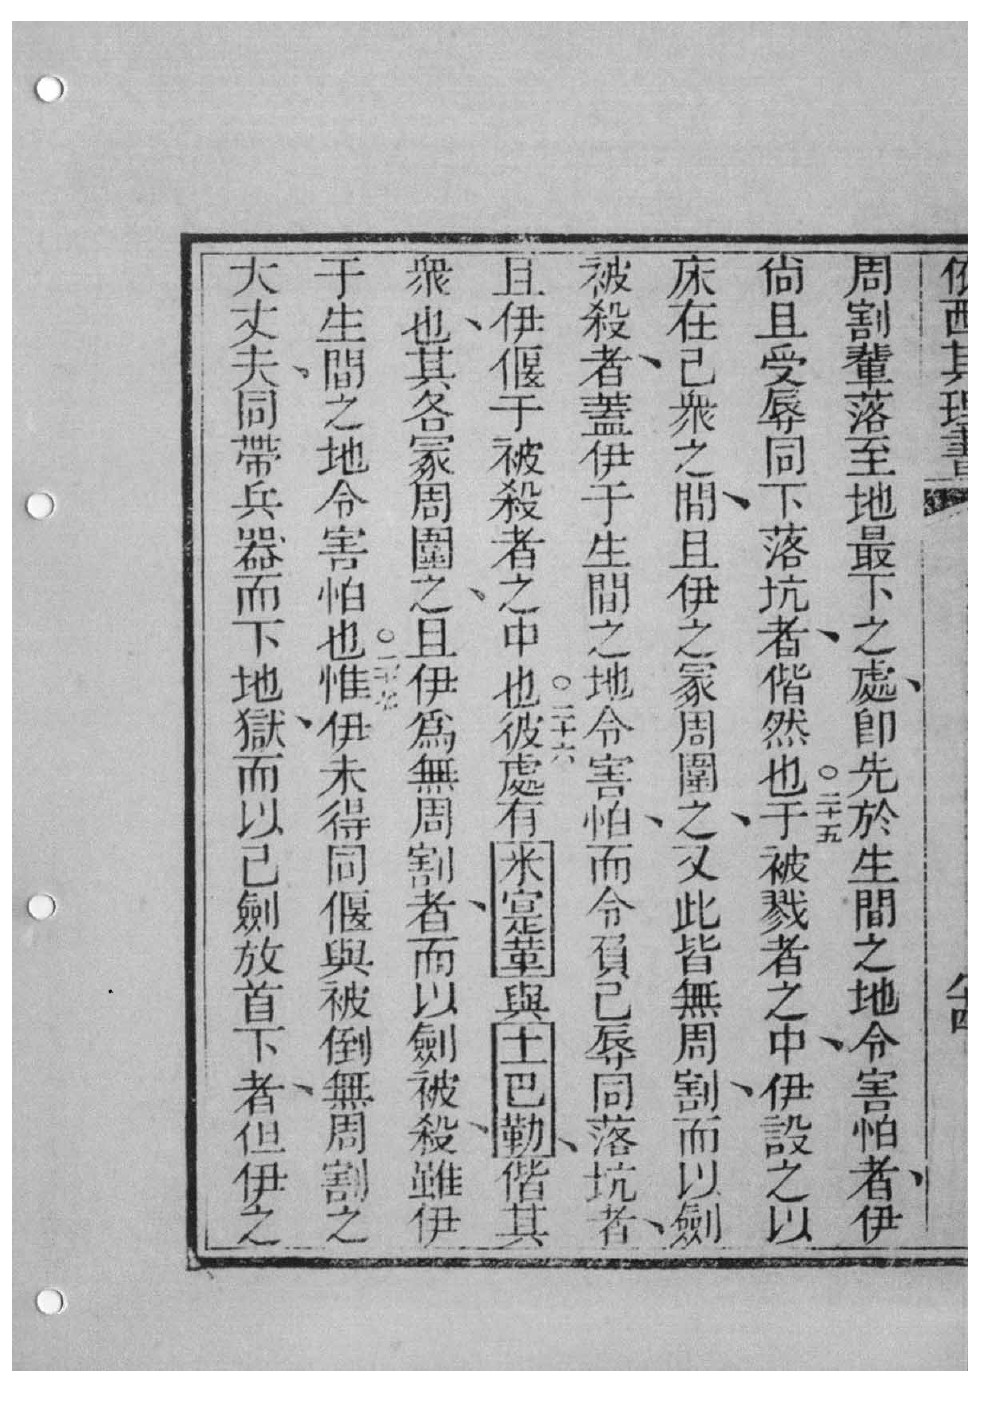 依西其理書 八十四
周割輩落至地最下之處、卽先於生間之地令害怕者、伊
尙且受辱同下落坑者、偕然也○二十五于被戮者之中、伊設之以
床在己衆之間、且伊之冢周圍之、又此皆無周割、而以劍
被殺者、蓋伊于生間之地令害怕、而令負己辱同落坑者、
且伊偃于被殺者之中也○二十六彼處有米寔革與土巴勒、偕其
衆也、其各冢周圍之、且伊爲無周割者、而以劍被殺、雖伊
于生間之地令害怕也○二十七惟伊未得同偃與被倒無周割之
大丈夫、同帶兵器而下地獄、而以己劍放首下者、但伊之